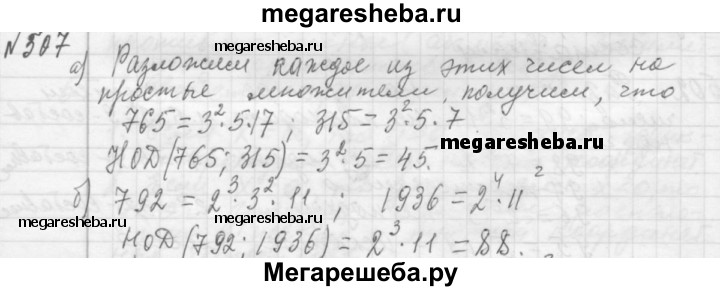 megaresheba.ru
№507 megaresheba.ru megaresheba.ru
а) Разложим каждое из этих чисел на
простые множители, получим, что
765 = 3²·5·17 ; 315 = 3²·5·7
НОД(765; 315) = 3²·5 = 45.
megaresheba.ru
б) 792 = 2³·3²·11 ; 1936 = 2⁴·11²
megaresheba.ru megaresheba.ru
НОД(792; 1936) = 2³·11 = 88.
Мегарешеба.ру